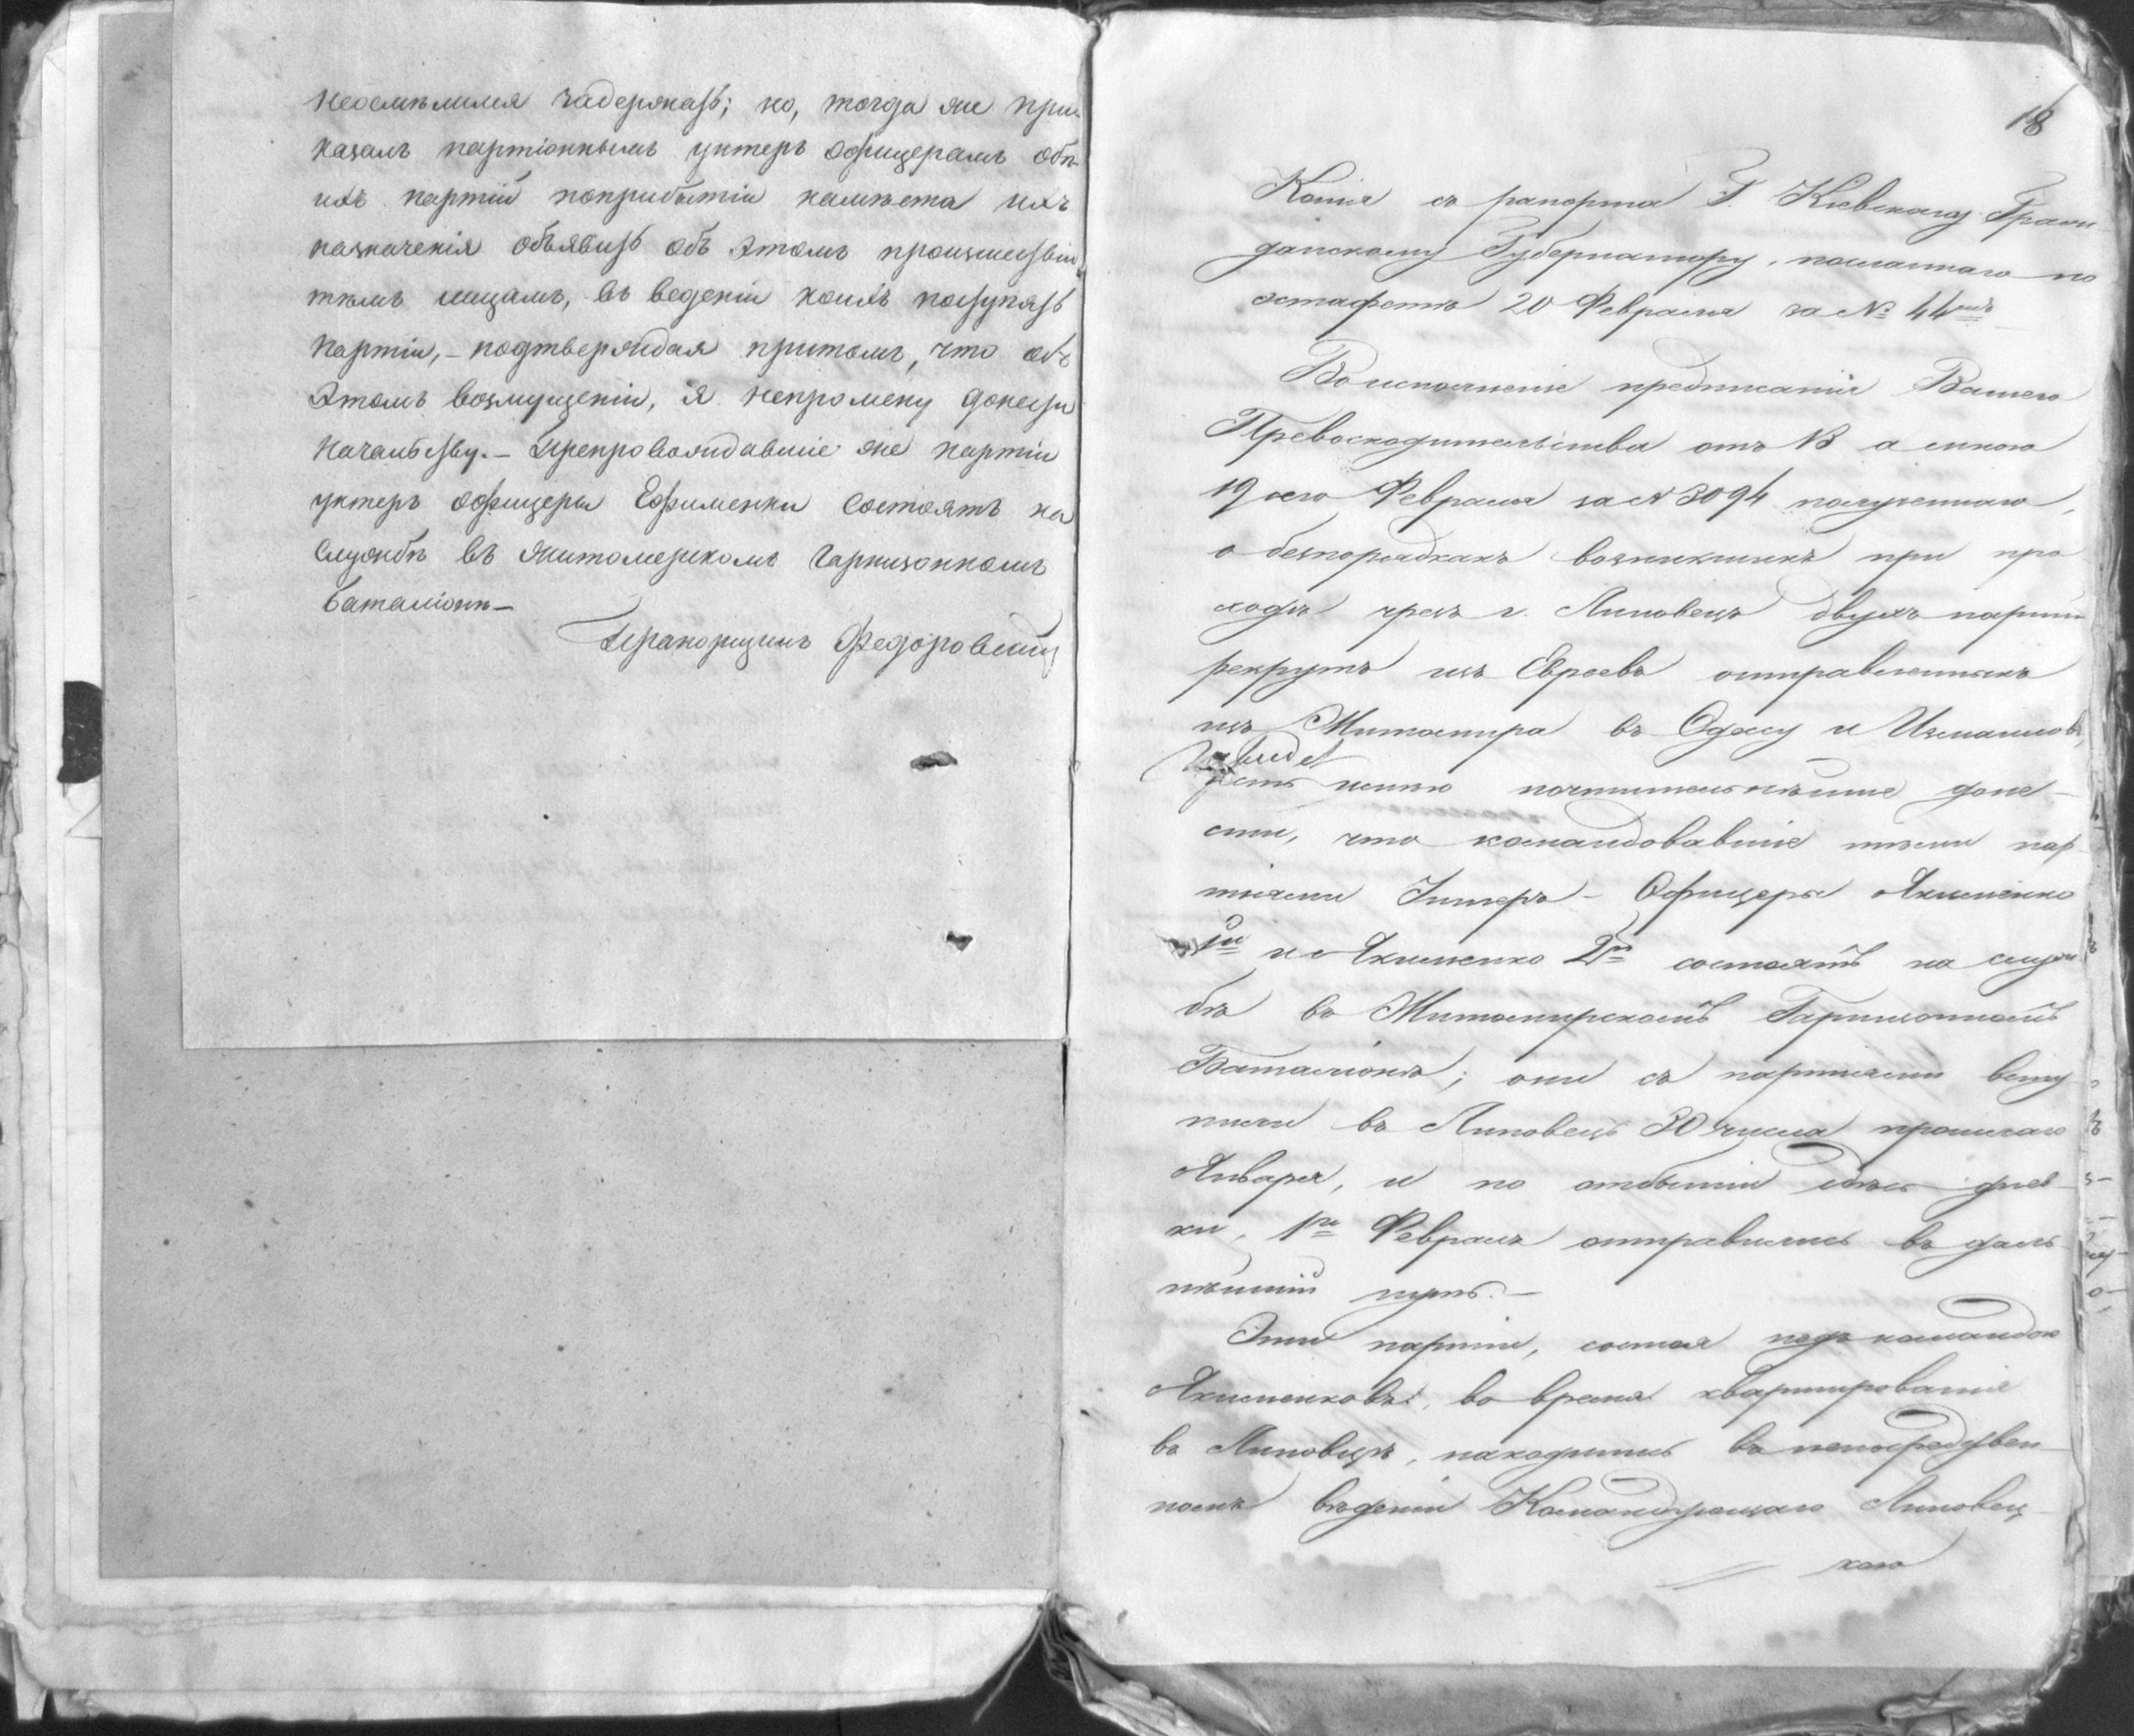 неосмѣлился задержать; но, тогда же при
казалъ партіоннымъ унтеръ офицерамъ обѣ
ихъ партій поприбытіи намѣста ихъ
назначенія объявить объ этомъ произшествіи
тѣмъ лицамъ, въ веденіи коихъ поступятъ
партіи, – подтверждая притомъ, что объ
этомъ возмущеніи, я непромену донести
начальству. – Препровождавшіе же партіи
унтеръ офицеры Ефименки состоятъ на
службѣ въ Житомерскомъ гарнизонномъ
баталіонѣ –
Прапорщикъ Федоровскій
18
Копія съ рапорта Г. Кіевскому Граж
данскому Губернатору, посланнаго по
эстафетѣ 20 Февраля за № 44мъ
Во исполненіе предписанія Вашего
Превосходительства отъ 13 а мною
19 сего Февраля за № 3094 полученнаго,
о безпорядкахъ возникшихъ при про
ходѣ чрезъ г. Липовецъ двухъ партій
рекрутъ изъ Евреевъ отправленныхъ
изъ Житомира въ Одессу и Измаилъ,
честь имѣю почтительнѣйше доне-
сти, что командовавшіе тѣми пар
тіями Унтеръ-Офицеры Якименко
1й и Якименко 2й состоятъ на служ
бѣ въ Житомирскомъ Гарнизонномъ
Баталіонѣ; они съ партіями всту
пили въ Липовецъ 30 числа прошлаго
Января, и по отбытіи здѣсь днев-
ки, 1го Февраля отправились въ даль-
нѣйшій путь. –
Эти партіи, состоя подъ командою
Якименковъ, во время квартированія
въ Липовцѣ, находились въ непосредствен-
номъ вѣденіи Командующаго Липовец-
каго